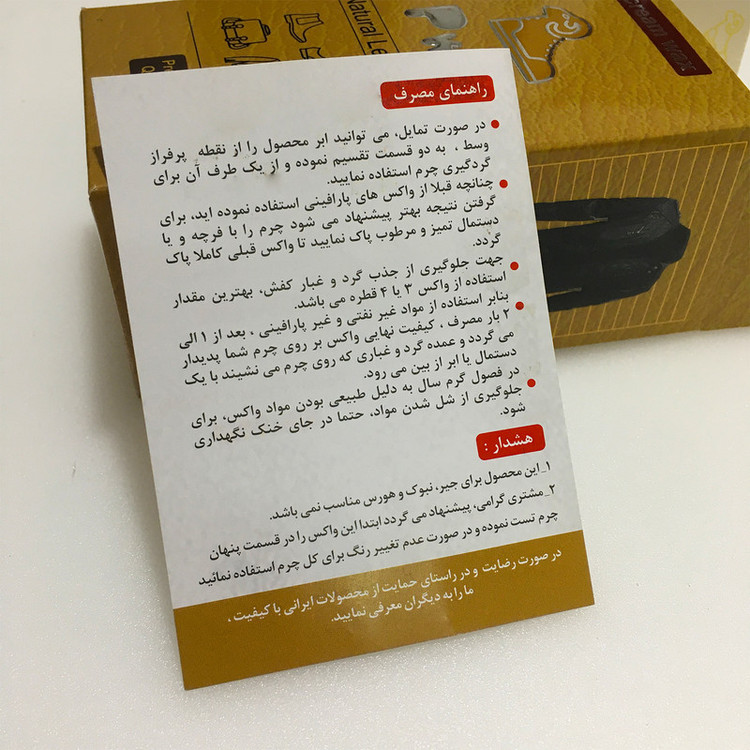 Cream Wax
Natural Le
راهنمای مصرف
در صورت تمایل، می توانید ابر محصول را از نقطه پرفراز
وسط ، به دو قسمت تقسیم نموده و از یک طرف آن برای
گردگیری چرم استفاده نمایید.
چنانچه قبلا از واکس های پارافینی استفاده نموده اید، برای
گرفتن نتیجه بهتر پیشنهاد می شود چرم را با فرچه و یا
دستمال تمیز و مرطوب پاک نمایید تا واکس قبلی کاملا پاک
گردد.
جهت جلوگیری از جذب گرد و غبار کفش، بهترین مقدار
استفاده از واکس ۳ یا ۴ قطره می باشد.
بنابر استفاده از مواد غیر نفتی و غیر پارافینی ، بعد از ۱ الی
۲ بار مصرف ، کیفیت نهایی واکس بر روی چرم شما پدیدار
می گردد و عمده گرد و غباری که روی چرم می نشیند با یک
دستمال یا ابر از بین می رود.
در فصول گرم سال به دلیل طبیعی بودن مواد واکس، برای
جلوگیری از شل شدن مواد، حتما در جای خنک نگهداری
شود.
هشدار :
۱_این محصول برای جیر، نبوک و هورس مناسب نمی باشد.
۲_مشتری گرامی، پیشنهاد می گردد ابتدا این واکس را در قسمت پنهان
چرم تست نموده و در صورت عدم تغییر رنگ برای کل چرم استفاده نمائید
در صورت رضایت و در راستای حمایت از محصولات ایرانی با کیفیت ،
ما را به دیگران معرفی نمایید.